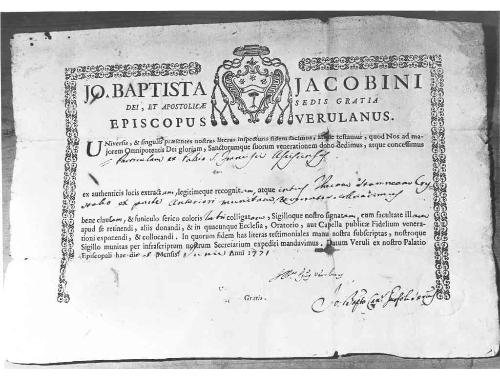 JO. BAPTISTA JACOBINI
DEI, ET APOSTOLICÆ SEDIS GRATIA
EPISCOPUS VERULANUS.
Universis, & singulis præsentes nostras literas inspecturis fidem facimus, atque testamur, quod Nos ad majorem
Omnipotentis Dei gloriam, Sanctorumque suorum venerationem dono dedimus, atque concessimus
Particulam ex
ex authenticis locis extractam, legitimeque recognitam, atque
bene clausam, & funiculo serico coloris rubri colligatam, Sigilloque nostro signatam, cum facultate illam
apud se retinendi, aliis donandi, & in quacunque Ecclesia, Oratorio, aut Capella publicæ Fidelium venerationi
exponendi, & collocandi. In quorum fidem has literas testimoniales manu nostra subscriptas, nostroque
Sigillo munitas per infrascriptum nostrum Secretarium expediri mandavimus. Datum Veruli ex nostro Palatio
Episcopali hac die Mensis Junii Anni 1771
Gratis.